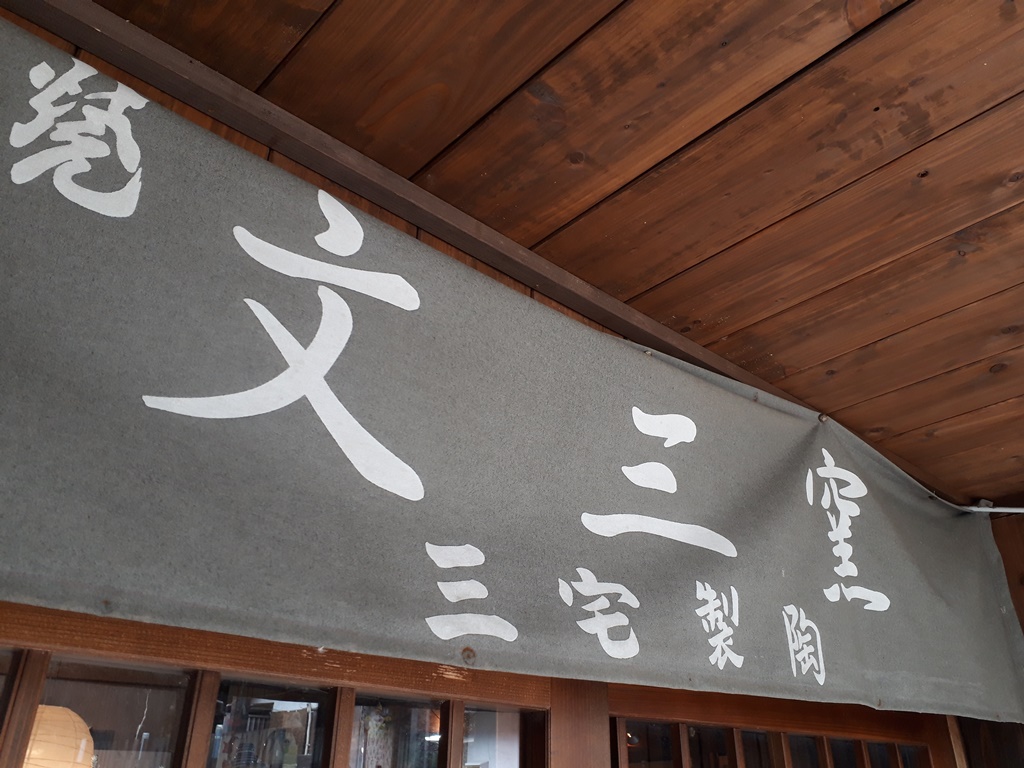 文三窯
三宅製陶